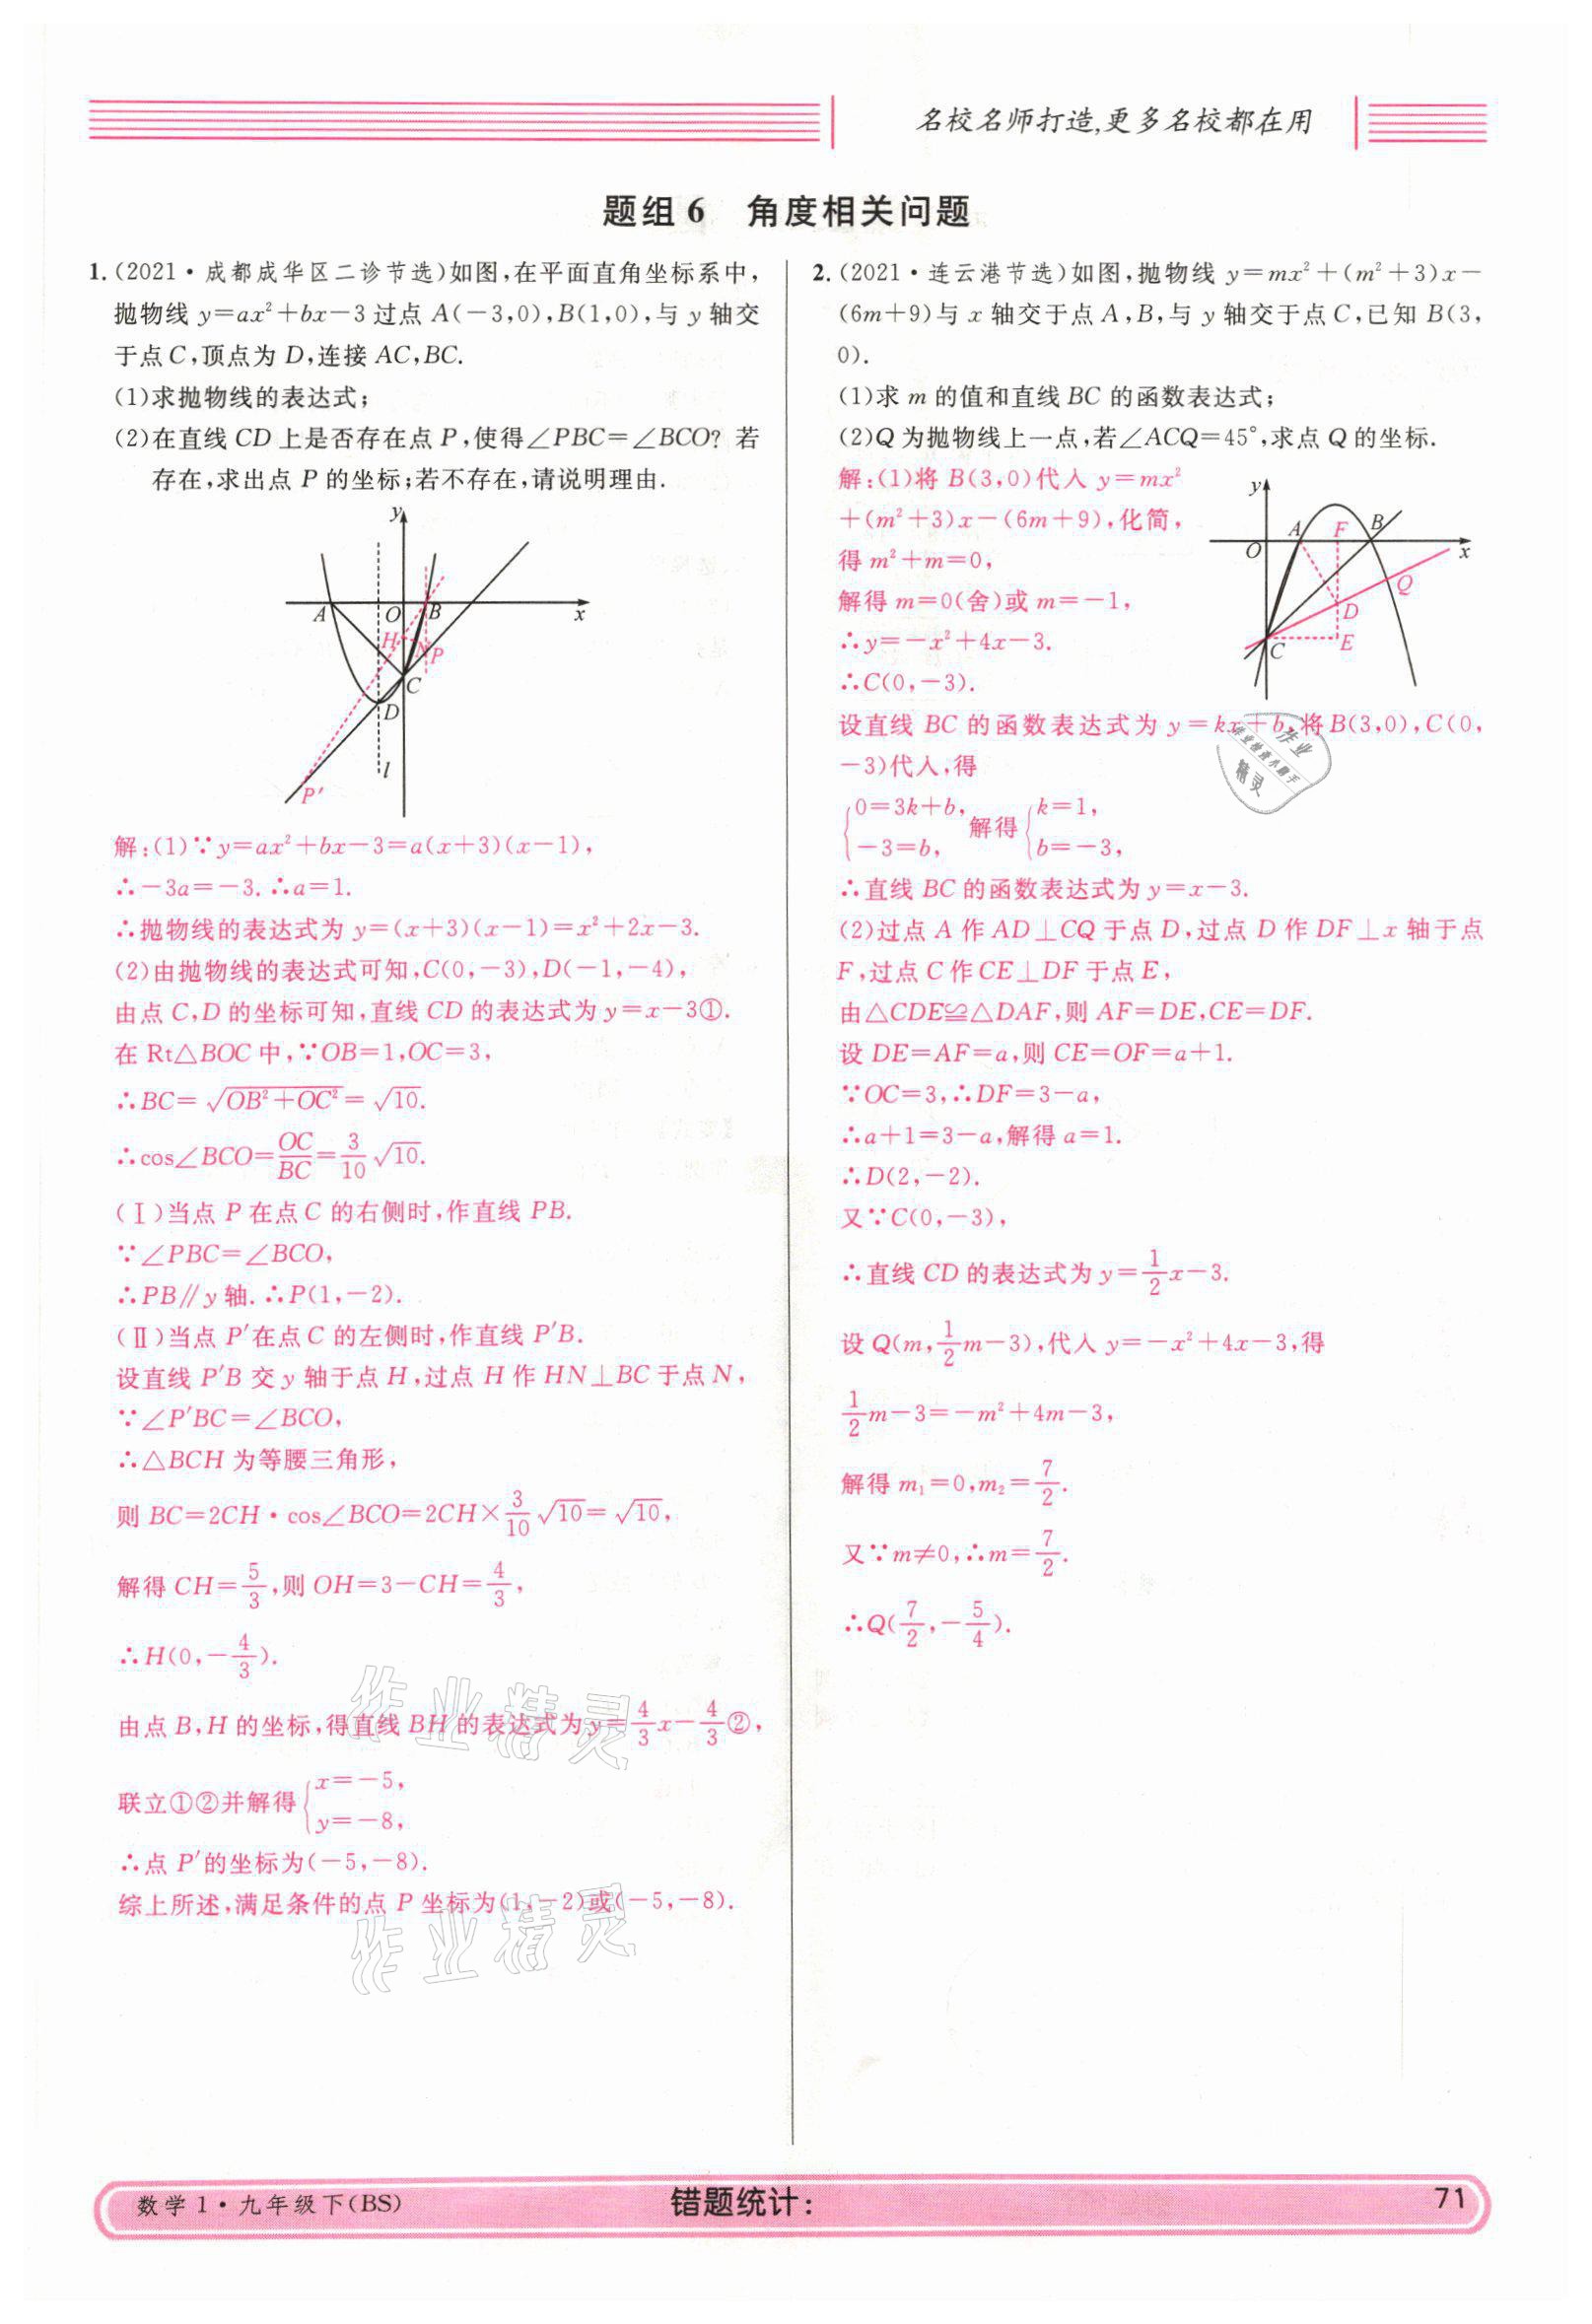 名校名师打造,更多名校都在用
题组6 角度相关问题
1.(2021·成都成华区二诊节选)如图,在平面直角坐标系中,
抛物线 y=ax²+bx-3 过点 A(-3,0),B(1,0),与 y 轴交
于点C,顶点为 D,连接 AC,BC.
(1)求抛物线的表达式;
(2)在直线 CD 上是否存在点 P,使得∠PBC=∠BCO? 若
存在,求出点 P 的坐标;若不存在,请说明理由.
y
A
O
B
x
H
N
P
C
D
l
P′
解:(1)∵y=ax²+bx-3=a(x+3)(x-1),
∴-3a=-3.∴a=1.
∴抛物线的表达式为 y=(x+3)(x-1)=x²+2x-3.
(2)由抛物线的表达式可知,C(0,-3),D(-1,-4),
由点 C,D 的坐标可知,直线 CD 的表达式为 y=x-3①.
在 Rt△BOC 中,∵OB=1,OC=3,
∴BC=√(OB²+OC²)=√10.
∴cos∠BCO=OC/BC=3/10√10.
(Ⅰ)当点 P 在点 C 的右侧时,作直线 PB.
∵∠PBC=∠BCO,
∴PB∥y 轴.∴P(1,-2).
(Ⅱ)当点 P′在点 C 的左侧时,作直线 P′B.
设直线 P′B 交 y 轴于点 H,过点 H 作 HN⊥BC 于点 N,
∵∠P′BC=∠BCO,
∴△BCH 为等腰三角形,
则 BC=2CH·cos∠BCO=2CH×3/10√10=√10,
解得 CH=5/3,则 OH=3-CH=4/3,
∴H(0,-4/3).
由点 B,H 的坐标,得直线 BH 的表达式为 y=4/3x-4/3②,
联立①②并解得{x=-5,
y=-8,
∴点 P′的坐标为(-5,-8).
综上所述,满足条件的点 P 坐标为(1,-2)或(-5,-8).
2.(2021·连云港节选)如图,抛物线 y=mx²+(m²+3)x-
(6m+9)与 x 轴交于点 A,B,与 y 轴交于点 C,已知 B(3,
0).
(1)求 m 的值和直线 BC 的函数表达式;
(2)Q 为抛物线上一点,若∠ACQ=45°,求点 Q 的坐标.
解:(1)将 B(3,0)代入 y=mx²
+(m²+3)x-(6m+9),化简,
得 m²+m=0,
解得 m=0(舍)或 m=-1,
∴y=-x²+4x-3.
∴C(0,-3).
y
A
F
B
O
x
Q
D
C
E
设直线 BC 的函数表达式为 y=kx+b,将B(3,0),C(0,
-3)代入,得
{0=3k+b,
-3=b, 解得{k=1,
b=-3,
∴直线 BC 的函数表达式为 y=x-3.
(2)过点 A 作 AD⊥CQ 于点 D,过点 D 作 DF⊥x 轴于点
F,过点 C 作 CE⊥DF 于点 E,
由△CDE≌△DAF,则 AF=DE,CE=DF.
设 DE=AF=a,则 CE=OF=a+1.
∵OC=3,∴DF=3-a,
∴a+1=3-a,解得 a=1.
∴D(2,-2).
又∵C(0,-3),
∴直线 CD 的表达式为 y=1/2x-3.
设 Q(m,1/2m-3),代入 y=-x²+4x-3,得
1/2m-3=-m²+4m-3,
解得 m₁=0,m₂=7/2.
又∵m≠0,∴m=7/2.
∴Q(7/2,-5/4).
作业精灵
作业精灵
数学1·九年级下(BS)
错题统计:
71